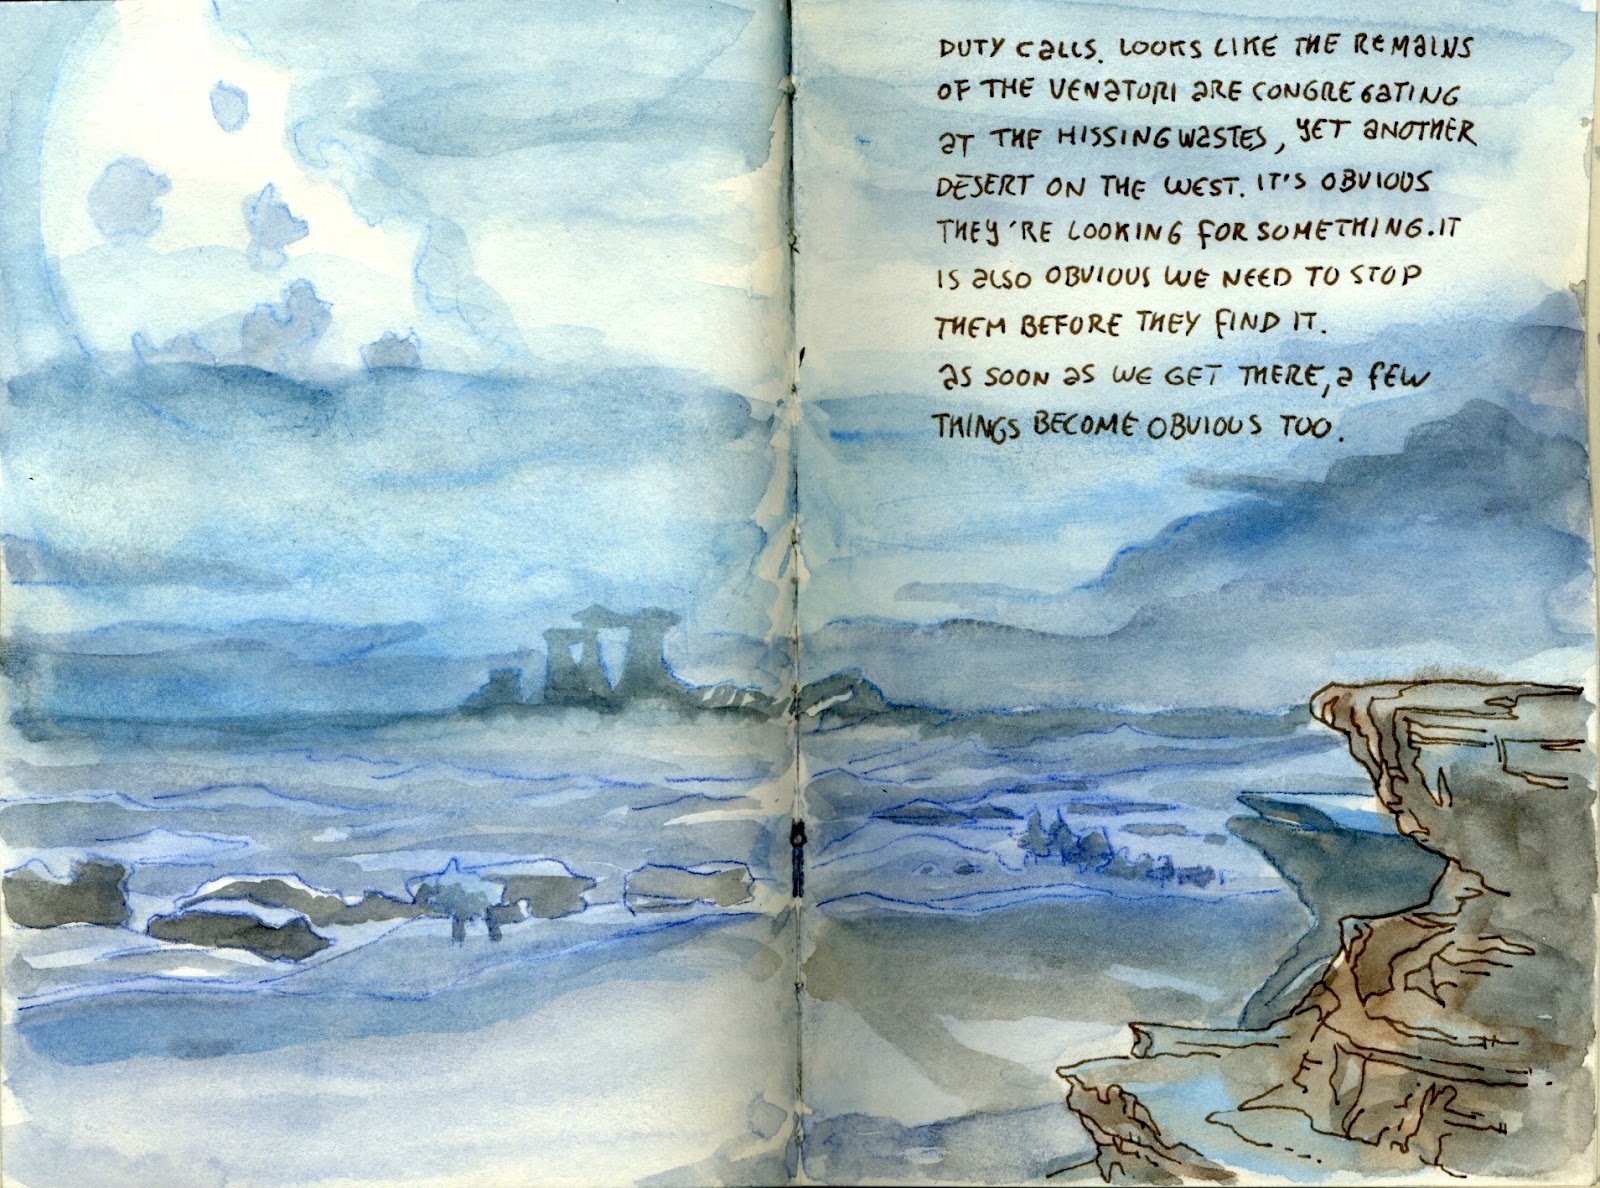 DUTY CALLS. LOOKS LIKE THE REMAINS
OF THE VENATORI ARE CONGREGATING
AT THE HISSING WASTES, YET ANOTHER
DESERT ON THE WEST. IT'S OBVIOUS
THEY'RE LOOKING FOR SOMETHING. IT
IS ALSO OBVIOUS WE NEED TO STOP
THEM BEFORE THEY FIND IT.
AS SOON AS WE GET THERE, A FEW
THINGS BECOME OBVIOUS TOO.